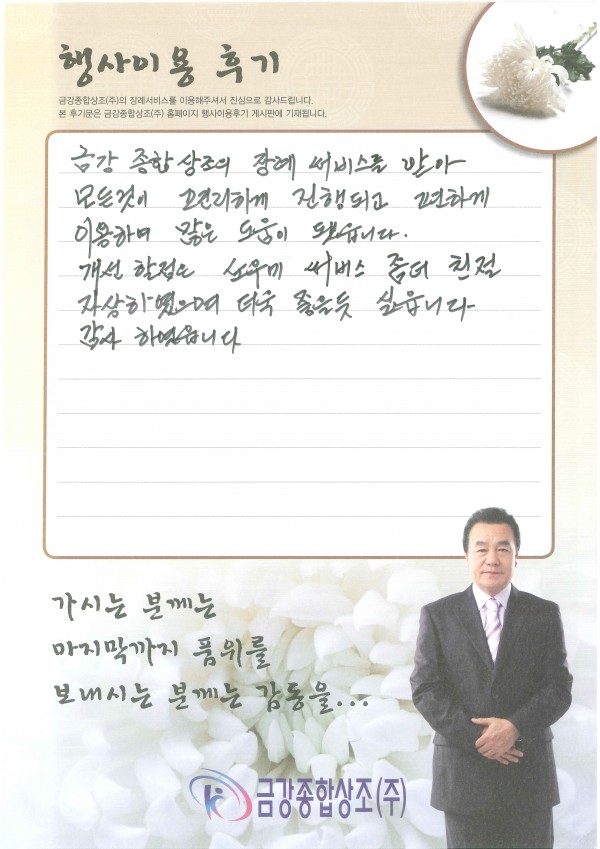 행사이용 후기
금강종합상조(주)의 장례서비스를 이용해주셔서 진심으로 감사드립니다.
본 후기문은 금강종합상조(주) 홈페이지 행사이용후기 게시판에 기재됩니다.
금강 종합상조의 장례 써비스를 받아
모든것이 편리하게 진행되고 편하게
이용하며 많은 도움이 됐습니다.
개선 할점은 도우미 써버스 좀더 친절
자상하였으며 더욱 좋을듯 싶읍니다
감사 하였읍니다
가시는 분께는
마지막까지 품위를
보내시는 분께는 감동을...
금강종합상조(주)